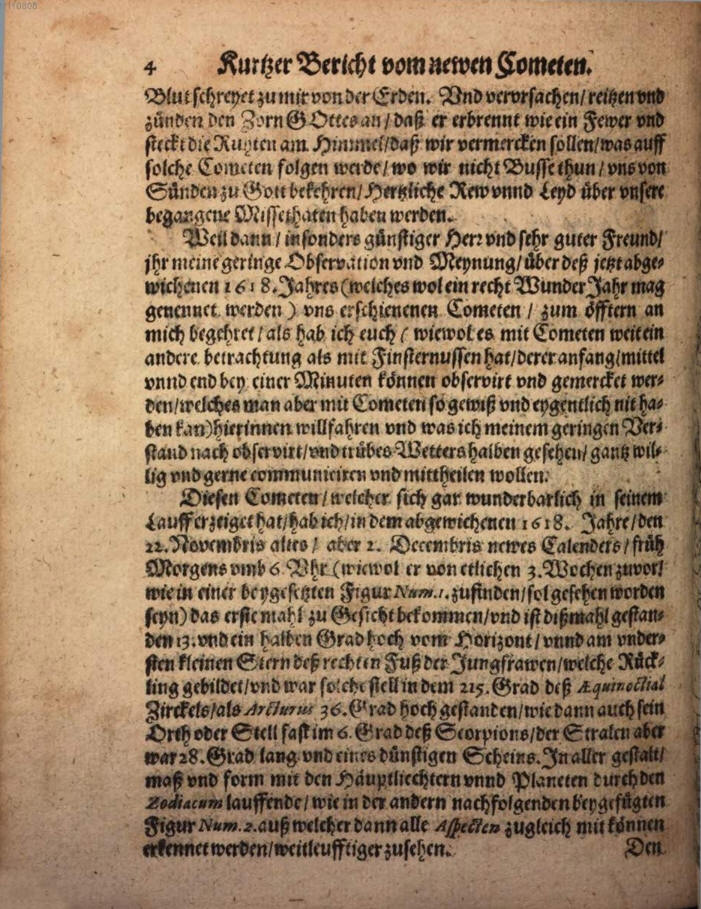 4 Kurtzer Bericht vom newen Cometen.
Blut schreyet zu mir von der Erden. Vnd vervrsachen/ reitzen vnd
zünden den Zorn GOttes an/ daß er erbrennt wie ein Fewer vnd
steckt die Ruhten am Himmel/ daß wir vermercken sollen/ was auff
solche Cometen folgen werde/ wo wir nicht Busse thun/ vns von
Sünden zu Gott bekehren/ Hertzliche Rew vnnd Leyd über vnsere
begangene Missethaten haben werden.
Weil dann/ insonders günstiger Herr vnd sehr guter Freund/
jhr meine geringe Observation vnd Meynung/ über deß jetzt abge-
wichenen 1618. Jahres (welches wol ein recht Wunder Jahr mag
genennet werden) vns erschienenen Cometen/ zum öfftern an
mich begehret/ als hab ich euch (wiewol es mit Cometen weit ein
andere betrachtung als mit Finsternussen hat/ derer anfang/ mittel
vnnd end bey einer Minuten können observirt vnd gemercket wer-
den/ welches man aber mit Cometen so gewiß vnd eygentlich nit ha-
ben kan) hierinnen willfahren vnd was ich meinem geringen Ver-
stand nach observirt/ vnd trübes Wetters halben gesehen/ gantz wil-
lig vnd gerne communiciren vnd mittheilen wollen.
Diesen Cometen/ welcher sich gar wunderbarlich in seinem
Lauff erzeiget hat/ hab ich/ in dem abgewichenen 1618. Jahre/ den
22. Novembris altes/ aber 2. Decembris newes Calenders/ früh
Morgens vmb 6 Vhr (wiewol er von etlichen 3. Wochen zuvor/
wie in einer beygesetzten Figur Num. 1. zufinden/ sol gesehen worden
seyn) das erste mahl zu Gesicht bekommen/ vnd ist dißmahl gestan-
den 13. vnd ein halben Grad hoch vom Horizont/ vnnd am vnder-
sten kleinen Stern deß rechten Fuß der Jungfrawen/ welche Rück-
ling gebildet/ vnd war solche stell in dem 215. Grad deß Æquinoctial
Zirckels/ als Arcturus 36. Grad hoch gestanden/ wie dann auch sein
Orth oder Stell fast im 6. Grad deß Scorpions/ der Stralen aber
war 28. Grad lang vnd eines dünstigen Scheins. In aller gestalt/
maß vnd form mit den Häuptliechtern vnnd Planeten durch den
Zodiacum lauffende/ wie in der andern nachfolgenden beygefügten
Figur Num. 2. auß welcher dann alle Aspecten zugleich mit können
erkennet werden/ weitleufftiger zusehen.
Den